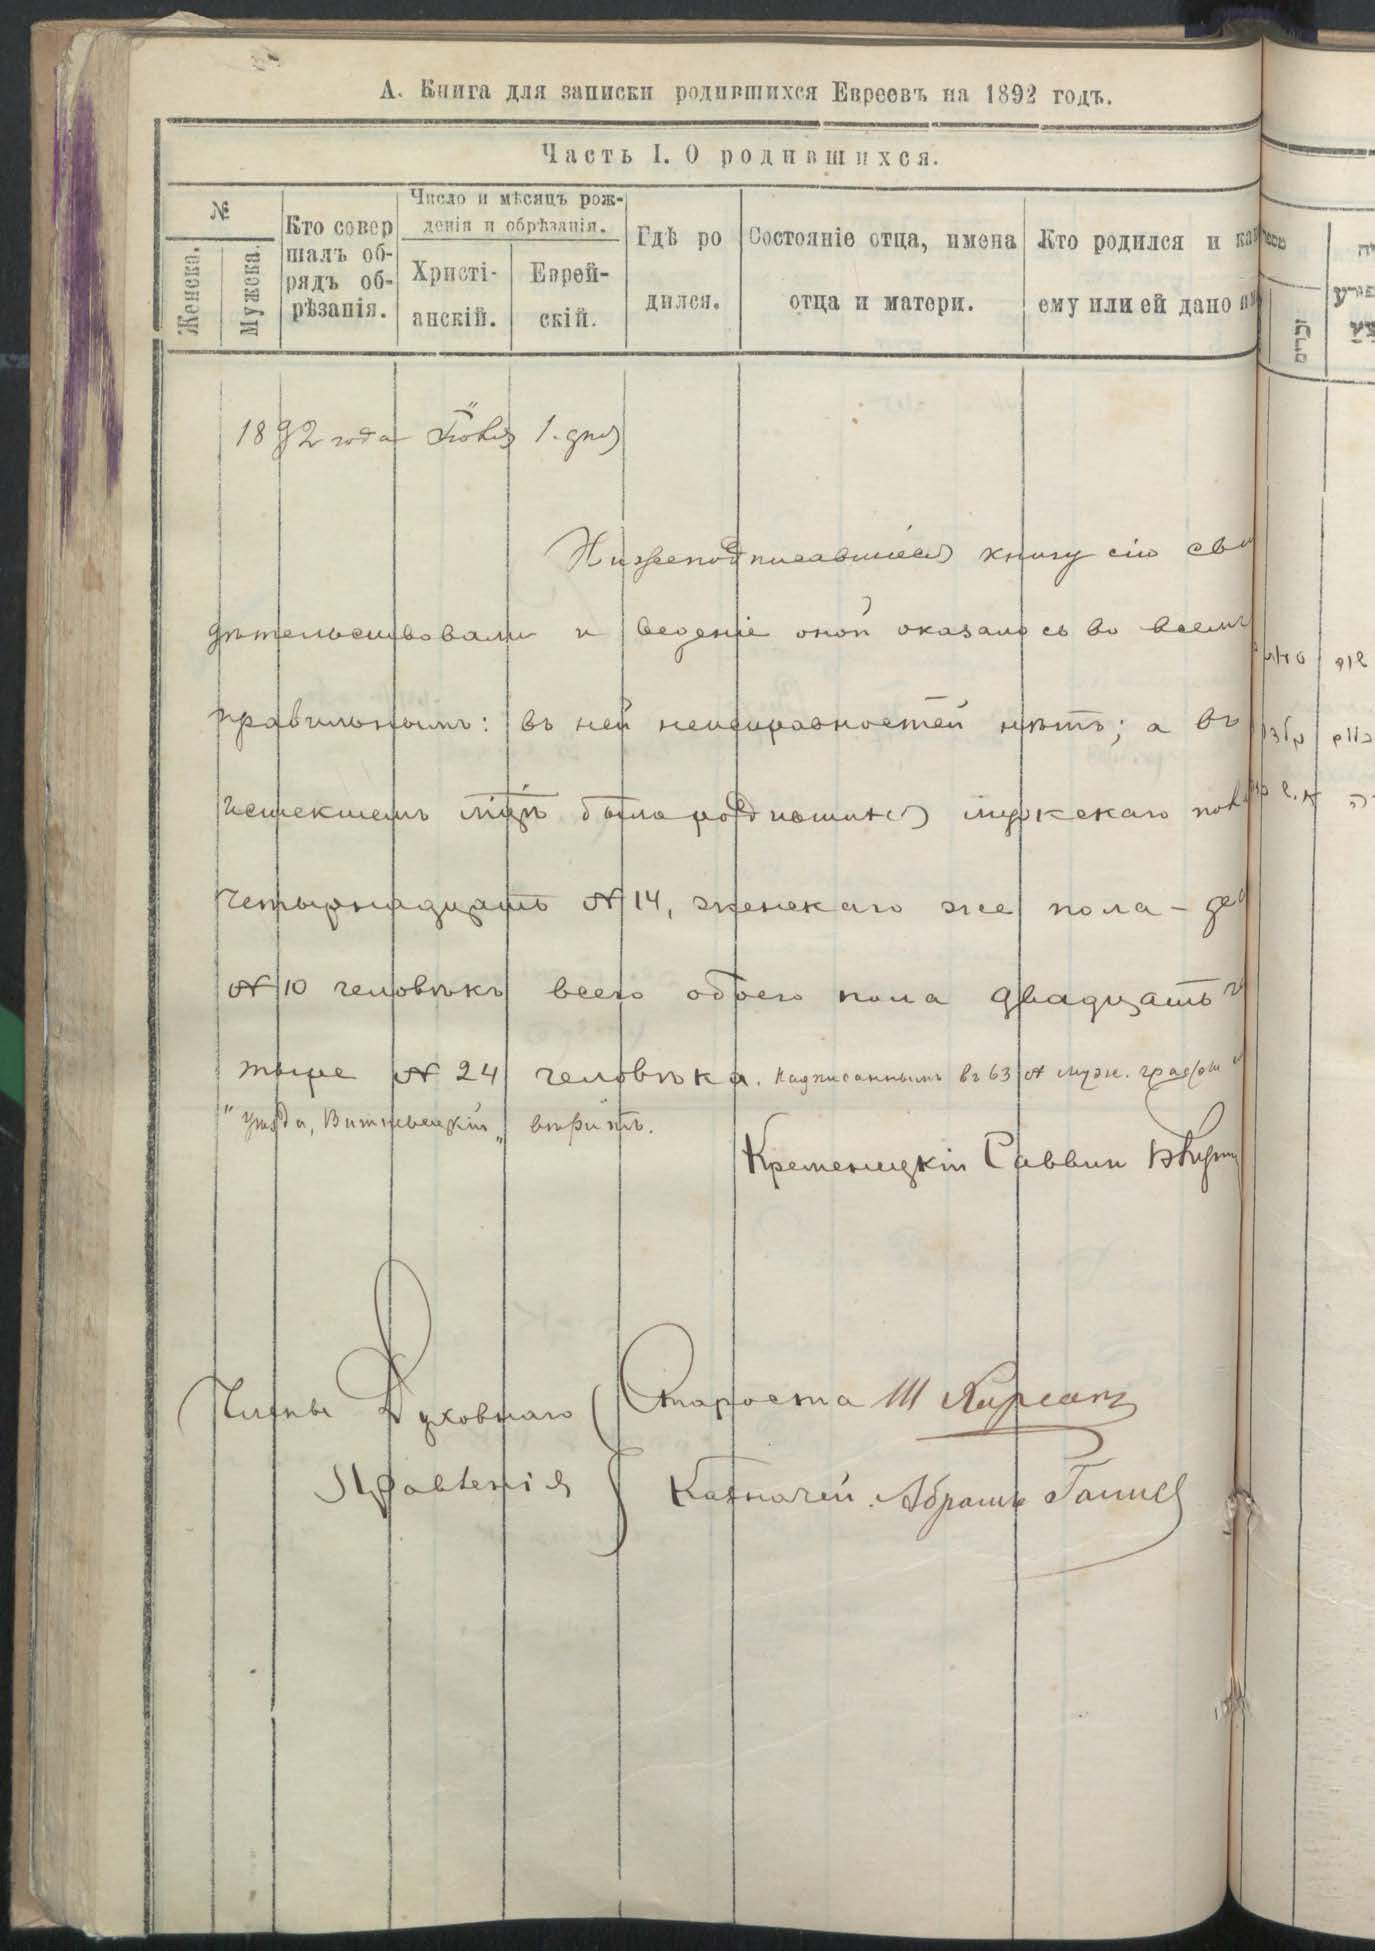 А. Книга для записки родившихся Евреевъ на 1892 годъ.
Часть I. О родившихся.
№
Женска.
Мужска.
Кто совер
шалъ об-
рядъ об-
рѣзанія.
Число и мѣсяцъ рож-
денія и обрѣзанія.
Христі-
анскій.
Еврей-
скій.
Гдѣ ро
дился.
Состояніе отца, имена
отца и матери.
Кто родился и ка
ему или ей дано
1892 года Іюня 1. дня
Нижеподписавшіеся книгу сію сви
дѣтельствовали и веденіе оной оказалось во всемъ
правильнымъ: въ ней неисправностей нѣтъ; а въ
истекшемъ мцѣ было родившихся мужскаго пола
четырнадцать № 14, женскаго же пола - дес
№ 10 человѣкъ всего обоего пола двадцать че
тыре № 24 человѣка. Надписаннымъ въ 63 № муж. графы
"уѣзда, вѣрить.
Кременецкій Раввин
Члены Духовнаго
Правленія
Староста Ш
Казначей Абрамъ
זכרים